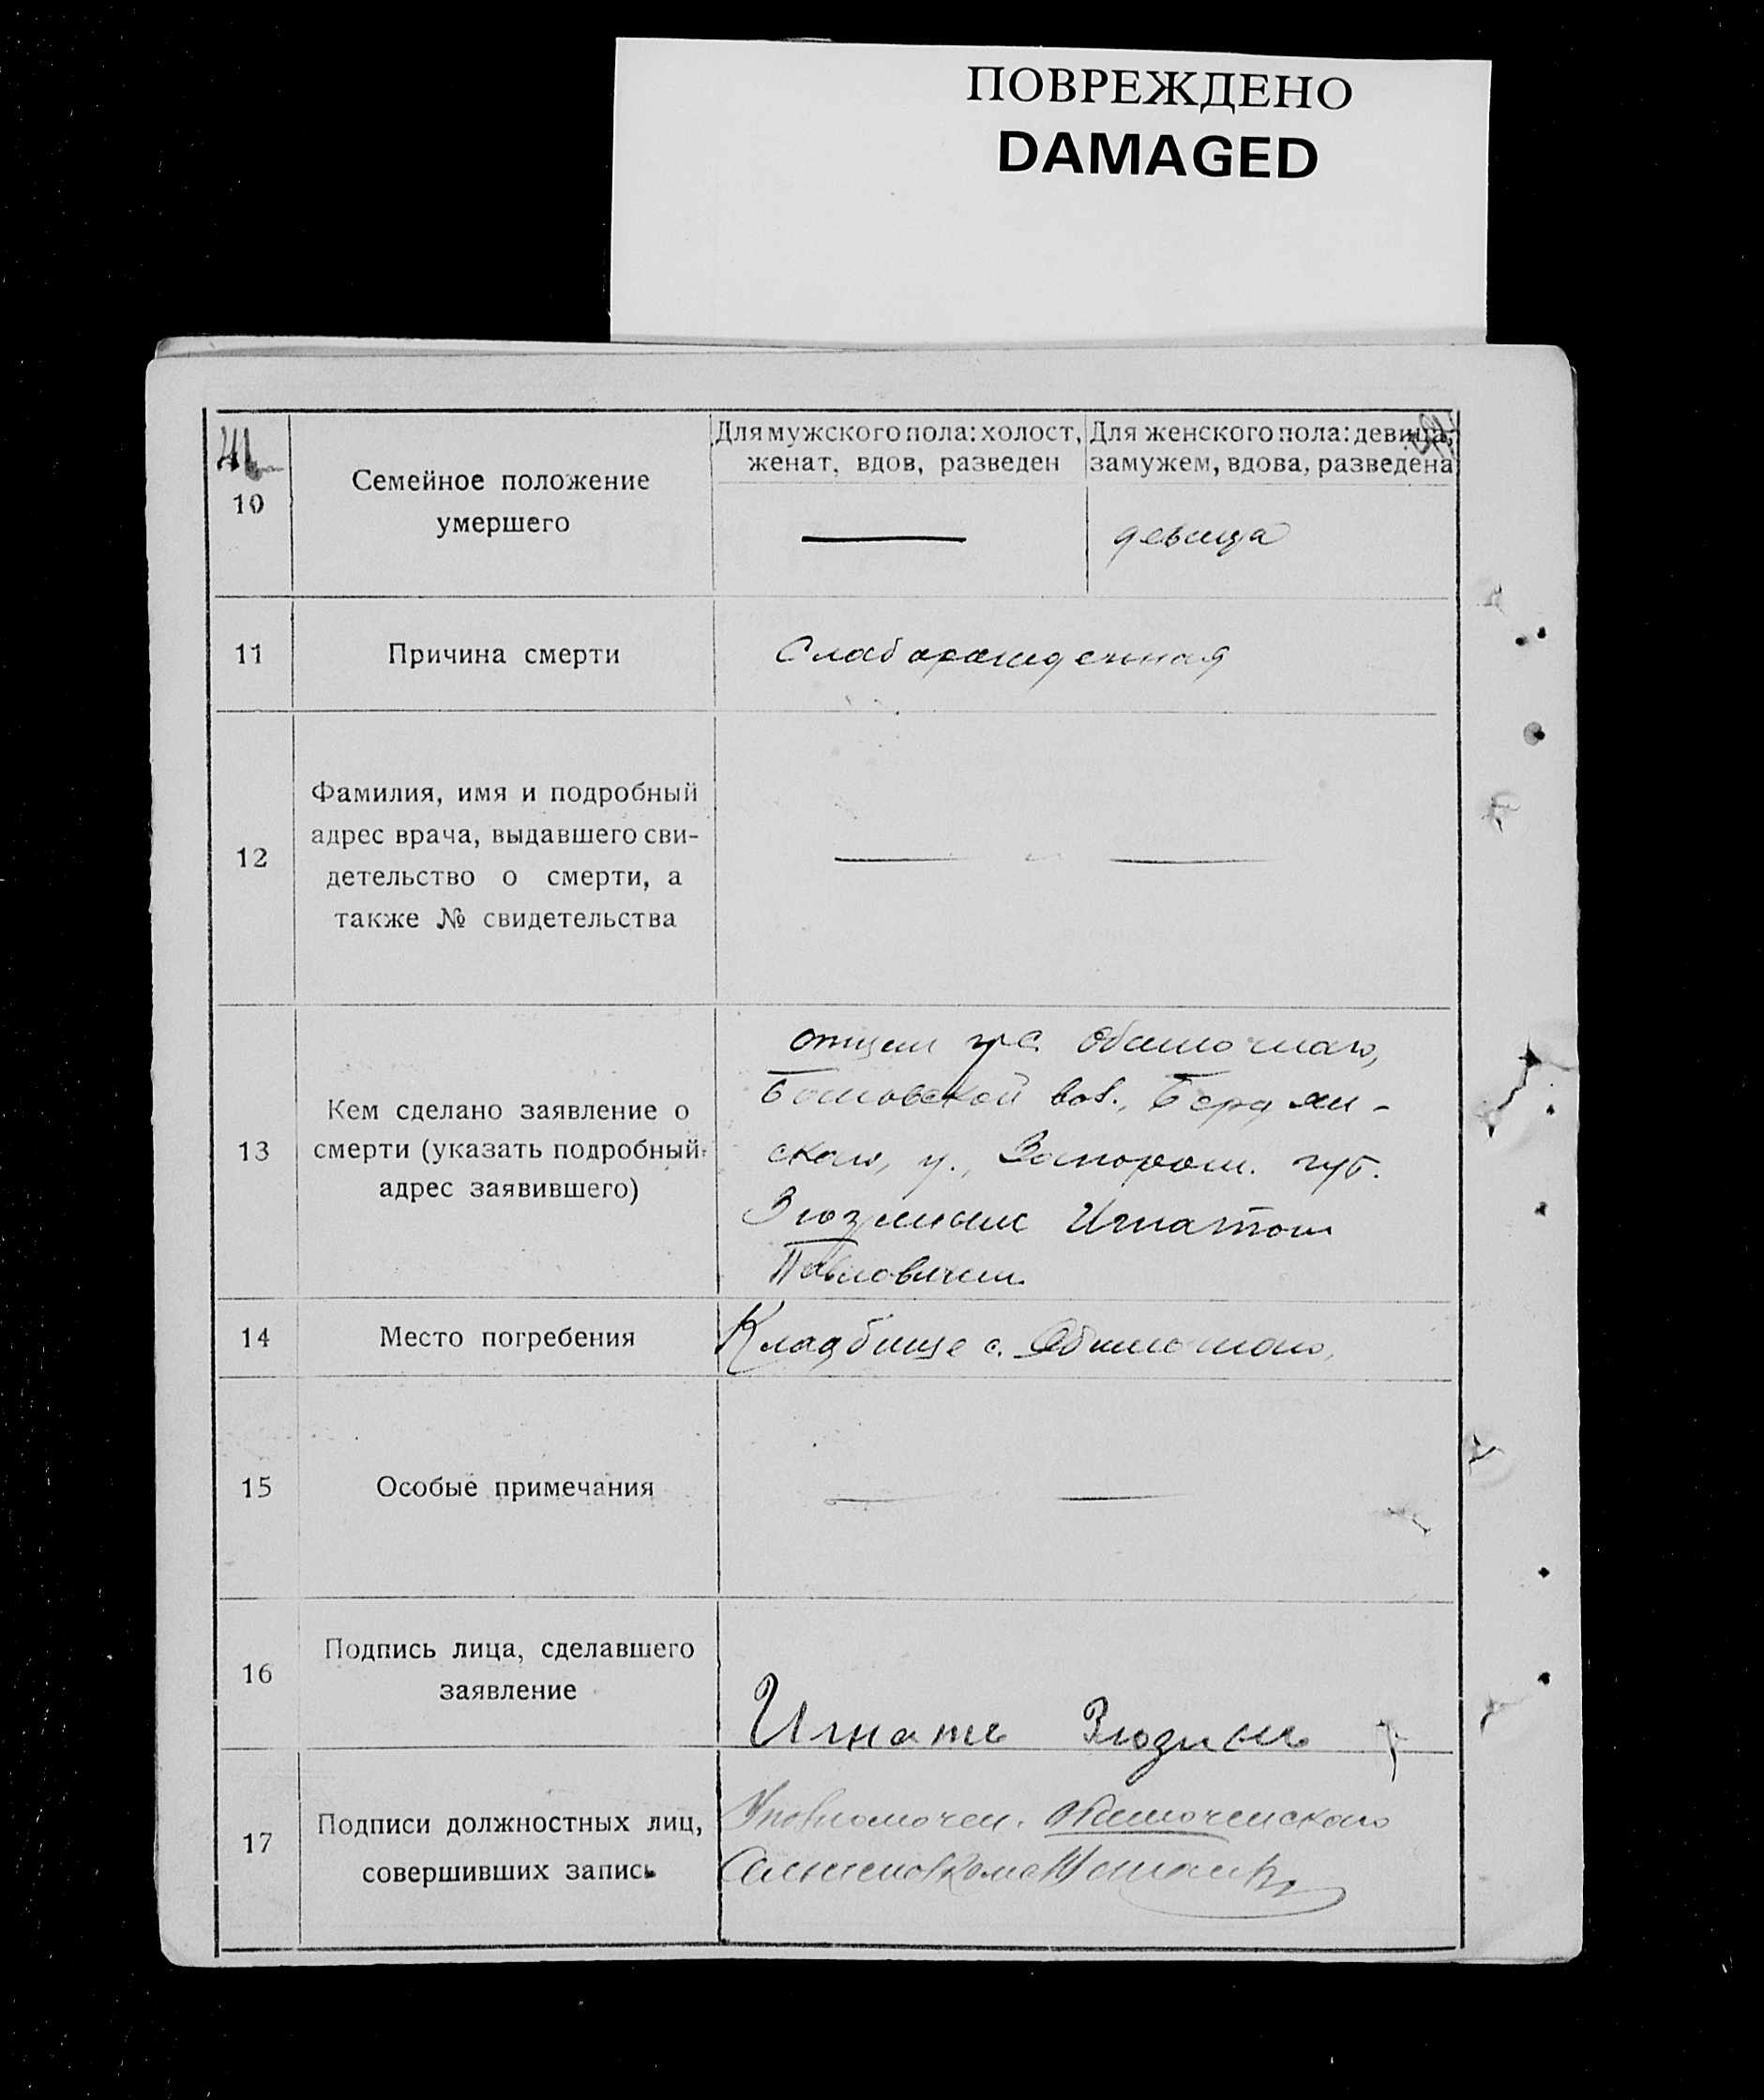 ПОВРЕЖДЕНО
DAMAGED
41
10
Семейное положение
умершего
Для мужского пола: холост,
женат, вдов, разведен
Для женского пола: девица,
замужем, вдова, разведена
девица
11
Причина смерти
Слаборожденная
12
Фамилия, имя и подробный
адрес врача, выдавшего сви-
детельство о смерти, а
также № свидетельства
13
Кем сделано заявление о
смерти (указать подробный
адрес заявившего)
отцем гр. с. Обиточнаго,
вол., Бердян-
скаго, у., Запорож. губ.
Игнатом
Павловичем
14
Место погребения
Кладбище с. Обиточнаго,
15
Особые примечания
16
Подпись лица, сделавшего
заявление
Игнать
17
Подписи должностных лиц,
совершивших запись
Уполномочен. Обиточенскаго